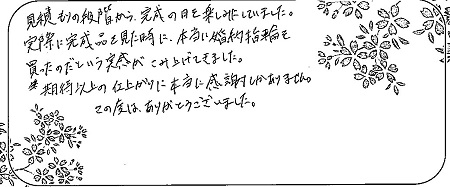 見積もりの段階から、完成の日を楽しみにしていました。
実際に完成品を見た時に、本当に婚約指輪を
買ったのだという実感がこみ上げてきました。
*期待以上の仕上がりに本当に感謝しかありません。
この度は、ありがとうございました。